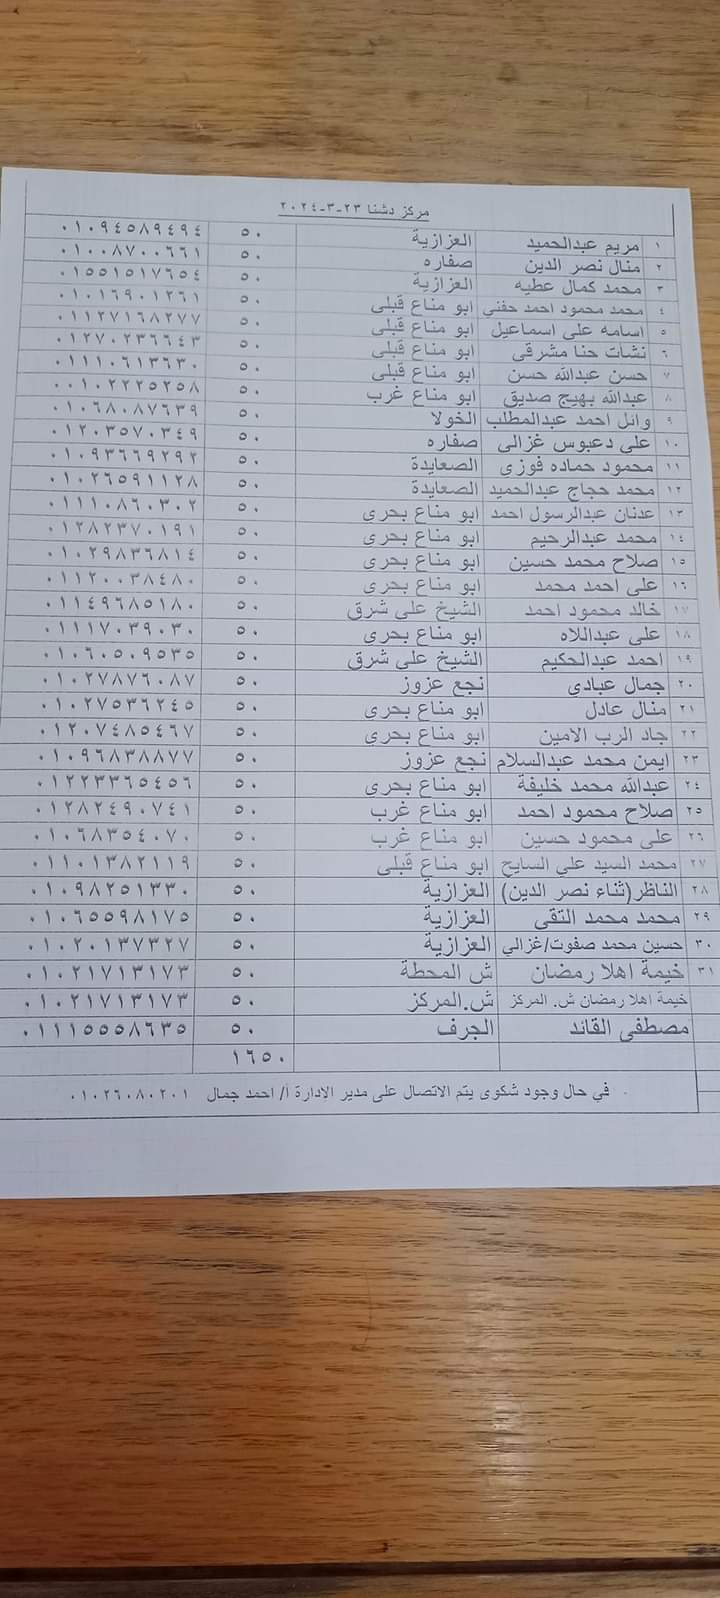 مركز دشنا ٢٣-٣-٢٠٢٤
١ مريم عبدالحميد العزازية ٥٠ ٠١٠٩٤٥٨٩٤٩٤
٢ منال نصر الدين صفاره ٥٠ ٠١٠٠٨٧٠٠٦٦١
٣ محمد كمال عطيه العزازية ٥٠ ٠١٥٥١٥١٧٦٥٤
٤ محمد محمود احمد حفني ابو مناع قبلى ٥٠ ٠١٠١٦٩٠١٢٦١
٥ اسامه على اسماعيل ابو مناع قبلى ٥٠ ٠١١٢٧١٦٨٢٧٧
٦ نشات حنا مشرقى ابو مناع قبلى ٥٠ ٠١٢٧٠٢٣٦٦٤٣
٧ حسن عبدالله حسن ابو مناع قبلى ٥٠ ٠١١١٠٦١٣٦٣٠
٨ عبدالله بهيج صديق ابو مناع غرب ٥٠ ٠٠١٠٢٢٢٥٢٥٨
٩ وائل احمد عبدالمطلب الخولا ٥٠ ٠١٠٦٨٠٨٧٦٣٩
١٠ على دعبوس غزالى صفاره ٥٠ ٠١٢٠٣٥٧٠٣٤٩
١١ محمود حماده فوزى الصعايدة ٥٠ ٠١٠٩٣٦٦٩٢٩٢
١٢ محمد حجاج عبدالحميد الصعايدة ٥٠ ٠١٠٢٦٥٩١١٢٨
١٣ عدنان عبدالرسول احمد ابو مناع بحرى ٥٠ ٠١١١٠٨٦٠٣٠٢
١٤ محمد عبدالرحيم ابو مناع بحرى ٥٠ ٠١٢٨٢٣٧٠١٩١
١٥ صلاح محمد حسين ابو مناع بحرى ٥٠ ٠١٠٢٩٨٣٦٨١٤
١٦ على احمد محمد ابو مناع بحرى ٥٠ ٠١١٢٠٠٣٨٤٨٠
١٧ خالد محمود احمد الشيخ على شرق ٥٠ ٠١١٤٩٦٨٥١٨٠
١٨ على عبداللاه ابو مناع بحرى ٥٠ ٠١١١٧٠٣٩٠٣٠
١٩ احمد عبدالحكيم الشيخ على شرق ٥٠ ٠١٠٦٠٥٠٩٥٣٥
٢٠ جمال عبادى نجع عزوز ٥٠ ٠١٠٢٧٨٧٦٠٨٧
٢١ منال عادل ابو مناع بحرى ٥٠ ٠١٠٢٧٥٣٦٢٤٥
٢٢ جاد الرب الامين ابو مناع بحرى ٥٠ ٠١٢٠٧٤٨٥٤٦٧
٢٣ ايمن محمد عبدالسلام نجع عزوز ٥٠ ٠١٠٩٦٨٣٨٨٧٧
٢٤ عبدالله محمد خليفة ابو مناع بحرى ٥٠ ٠١٢٢٣٣٦٥٤٥٦
٢٥ صلاح محمود احمد ابو مناع غرب ٥٠ ٠١٢٨٢٤٩٠٧٤١
٢٦ على محمود حسين ابو مناع غرب ٥٠ ٠١٠٦٨٣٥٤٠٧٠
٢٧ محمد السيد علي السايح ابو مناع قبلى ٥٠ ٠١١٠١٣٨٢١١٩
٢٨ الناظر(ثناء نصر الدين) العزازية ٥٠ ٠١٠٩٨٢٥١٣٣٠
٢٩ محمد محمد التقى العزازية ٥٠ ٠١٠٦٥٥٩٨١٧٥
٣٠ حسين محمد صفوت/غزالي العزازية ٥٠ ٠١٠٢٠١٣٧٣٢٧
٣١ خيمة اهلا رمضان ش المحطة ٥٠ ٠١٠٢١٧١٣١٧٣
خيمة اهلا رمضان ش. المركز ش.المركز ٥٠ ٠١٠٢١٧١٣١٧٣
مصطفى القائد الجرف ٥٠ ٠١١١٥٥٥٨٦٣٥
١٦٥٠
في حال وجود شكوى يتم الاتصال على مدير الإدارة أ/ احمد جمال ٠١٠٢٦٠٨٠٢٠١